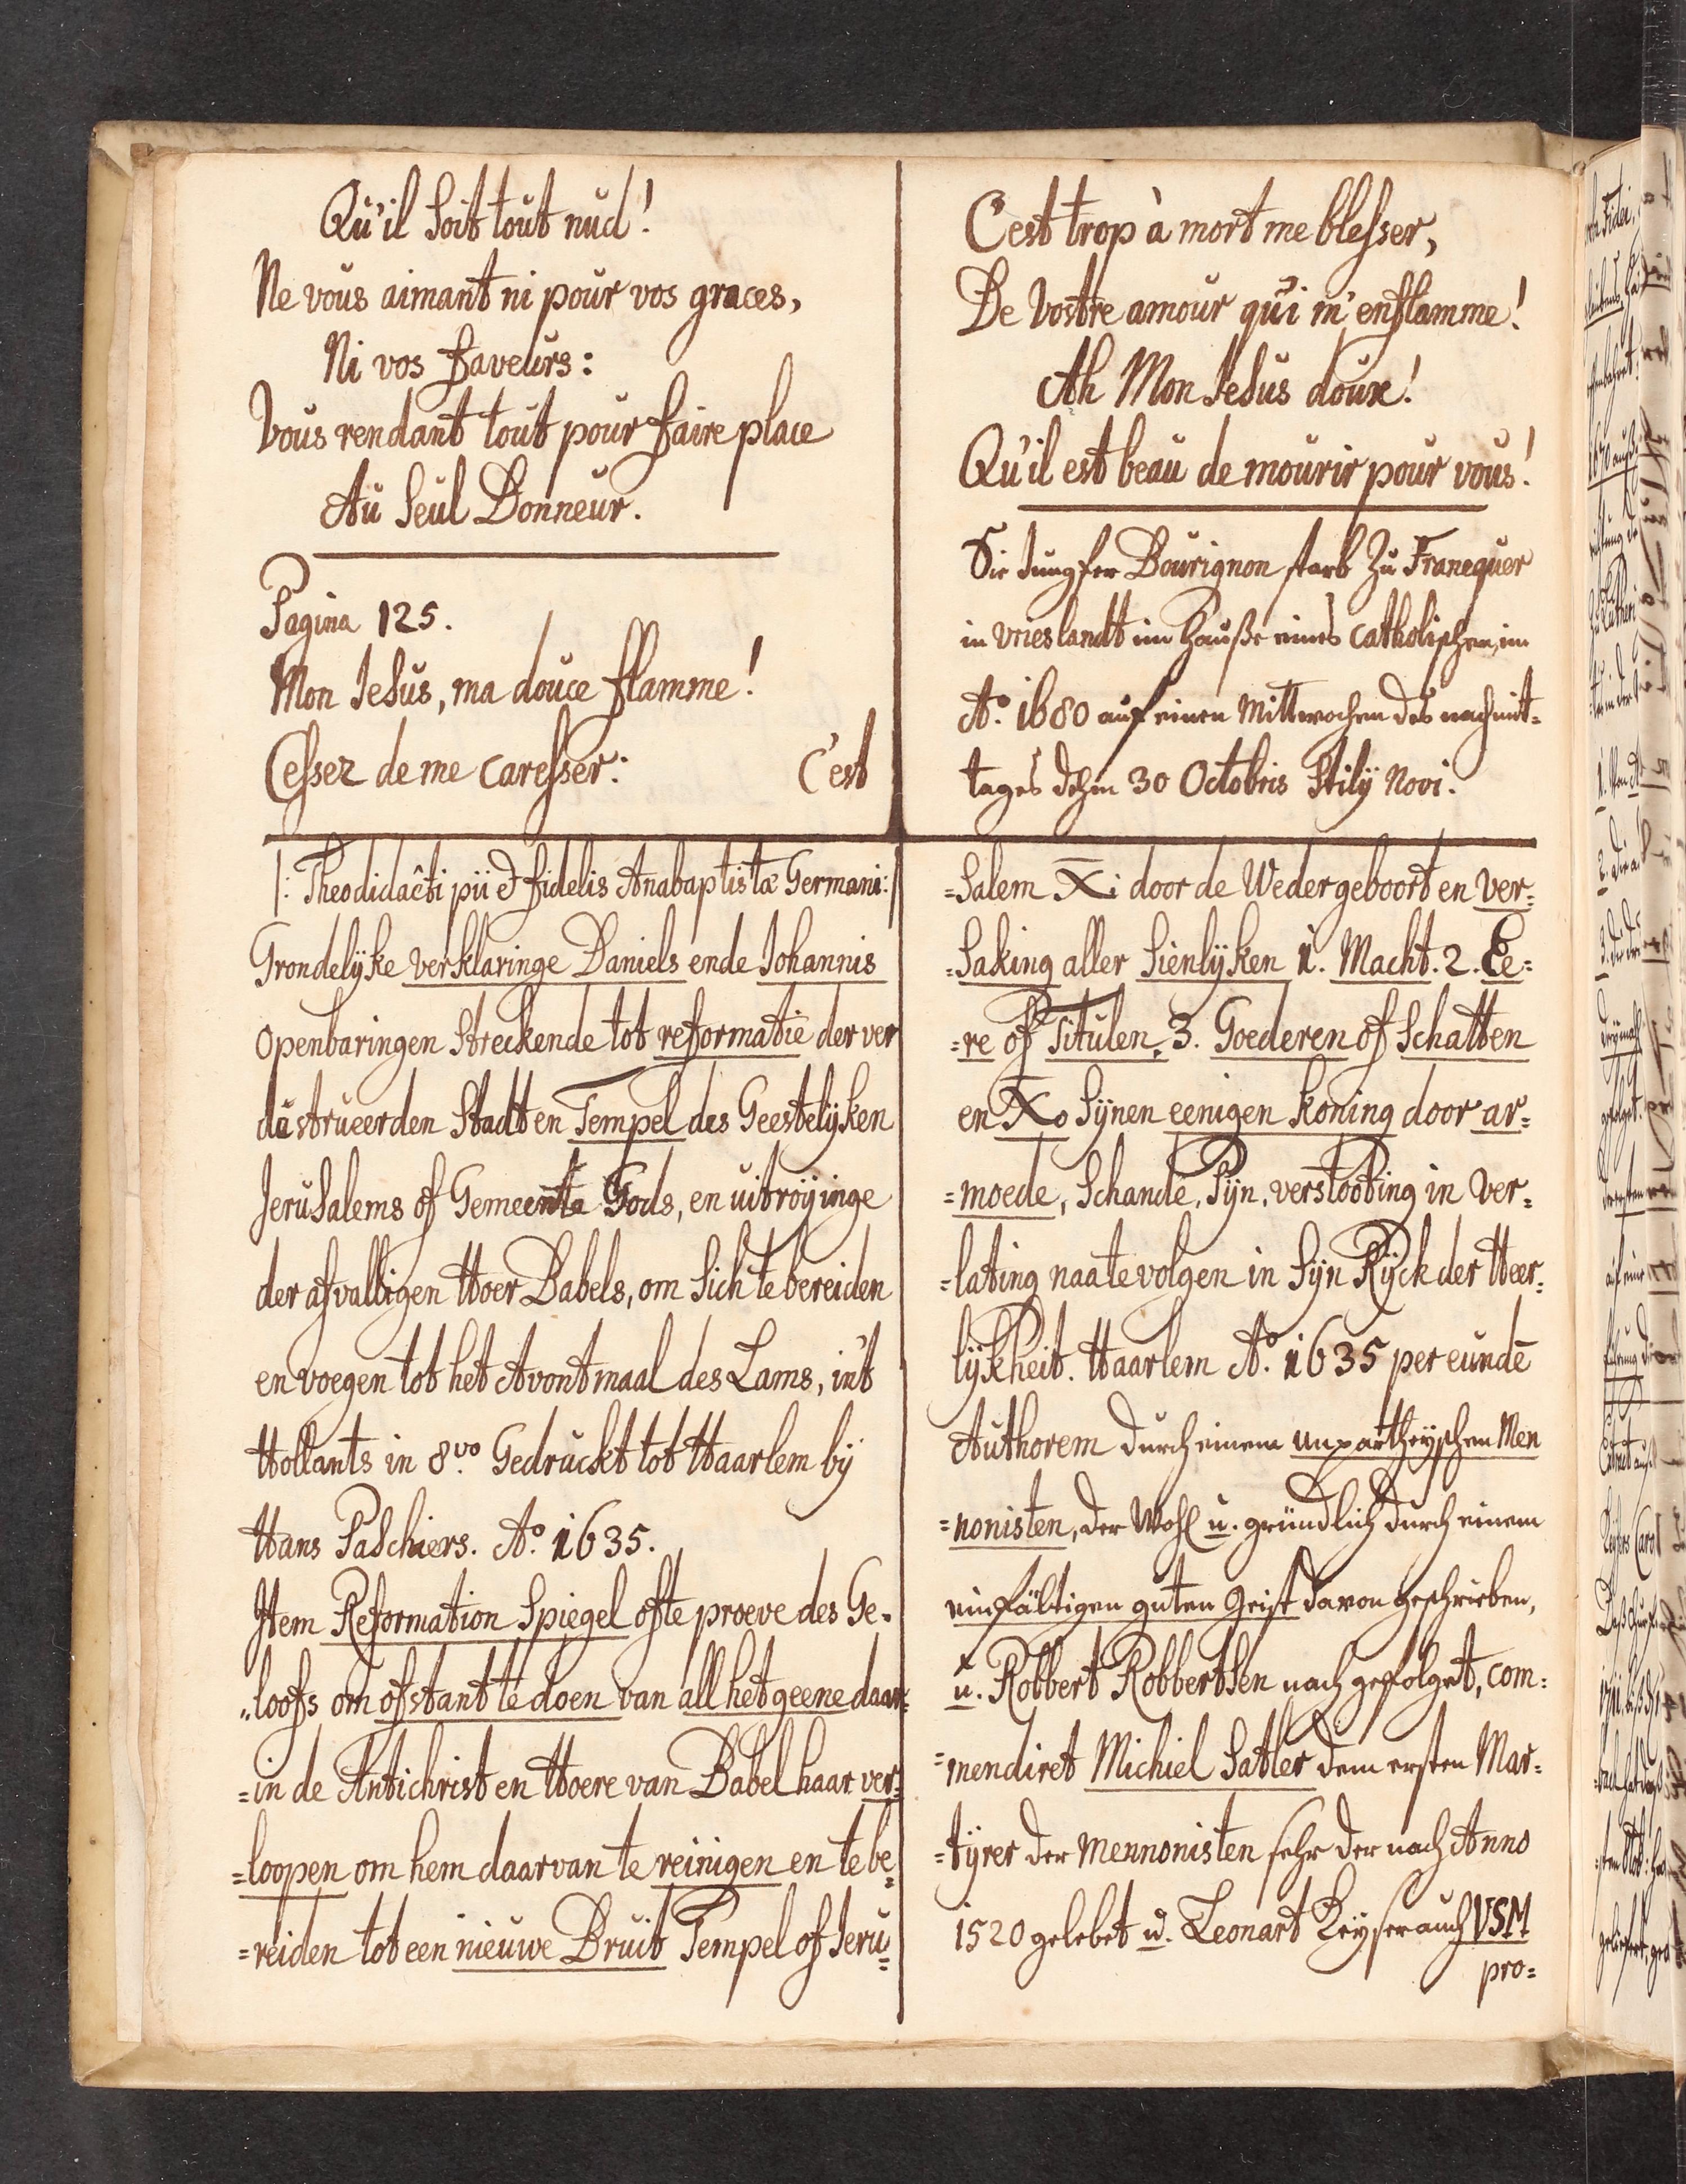 Qu'il soit tout nud!
Ne vous aimant ni pour vos graces,
Ni vos faveurs:
Vous rendant tout pour faire place
Au seul Donneur.
Pagina 125.
Mon Jesus, ma douce flamme!
Cessez de me caresser: C'est
C'est trop à mort me blesser,
De vostre amour qui m'enflamme!
Ah Mon Jesus doux!
Qu'il est beau de mourir pour vous!
Die Jungfer Bourignon starb zu Franequer
in vrieslandt im Hauße eines Catholischen, im
Aº. 1680 auf einen Mittwochen des nachmit=
tages dehm 30 Octobris Stilÿ Novi.
/: Theodidacti pii & fidelis Anabaptistæ Germani:/
Grondelÿke verklaringe Daniels ende Johannis
openbaringen streckende tot reformatie der ver
destrueerden Stadt en Tempel des Geestelÿken
Jerusalems of Gemeente Gods, en uitroÿinge
der afvalligen Hoer Babels, om sich te bereiden
en voegen tot het Avontmaal des Lams, in't
Hollants in 8.vo Gedruckt tot Haarlem bÿ
Hans Paschiers. Aº. 1635.
Item Reformation Spiegel ofte proeve des Ge=
=loofs om ofstant te doen van all het geene daar=
=in de Antichrist en Hoere van Babel haar ver=
=loopen om hem daarvan te reinigen en te be=
=reiden tot een nieuwe Bruit Tempel of Jeru=
=salem Xi door de Wedergeboort en ver=
=saking aller sienlÿken 1. Macht. 2. Ee=
=re of Titulen, 3. Goederen of Schatten
en Xo Sÿnen eenigen Koning door ar=
=moede, Schande, Pÿn, verstooting in ver=
=lating naa te volgen in Sÿn Rÿck der Heer=
lÿkheit. Haarlem Aº. 1635 per eundē
Authorem durch einem unpartheyschen Men
=nonisten, der wohl u. gründlich durch einem
einfältigen guten Geist davon geschrieben,
u. Robbert Robbertsen nach gefolget, com=
=mendiret Michiel Satler dem ersten Mar=
=tÿrer der Mennonisten sehr der nach Anno
1520 gelebet u. Leonart Keyser auch VSM
pro=